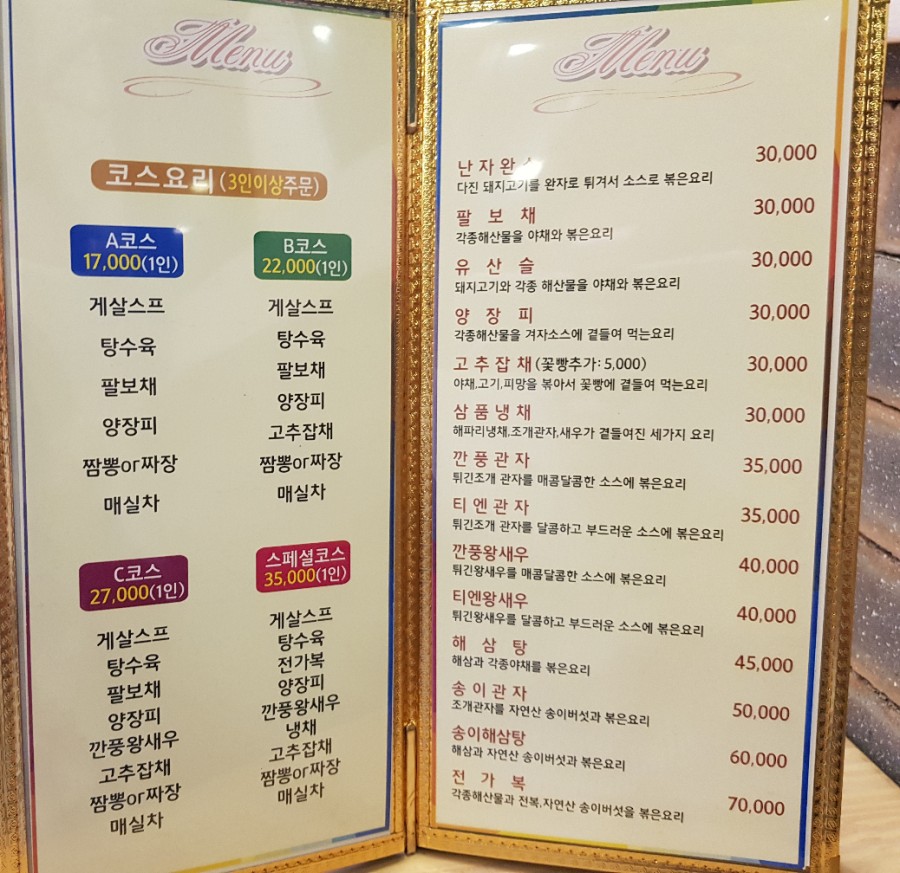 Menu
코스요리 (3인이상주문)
A코스
17,000(1인)
게살스프
탕수육
팔보채
양장피
짬뽕or짜장
매실차
B코스
22,000(1인)
게살스프
탕수육
팔보채
양장피
고추잡채
짬뽕or짜장
매실차
C코스
27,000(1인)
게살스프
탕수육
팔보채
양장피
깐풍왕새우
고추잡채
짬뽕or짜장
매실차
스페셜코스
35,000(1인)
게살스프
탕수육
전가복
양장피
깐풍왕새우
냉채
고추잡채
짬뽕or짜장
매실차
Menu
난자완스 30,000
다진 돼지고기를 완자로 튀겨서 소스로 볶은요리
팔보채 30,000
각종해산물을 야채와 볶은요리
유산슬 30,000
돼지고기와 각종 해산물을 야채와 볶은요리
양장피 30,000
각종해산물을 겨자소스에 곁들여 먹는요리
고추잡채 (꽃빵추가: 5,000) 30,000
야채,고기,피망을 볶아서 꽃빵에 곁들여 먹는요리
삼품냉채 30,000
해파리냉채,조개관자,새우가 곁들여진 세가지 요리
깐풍관자 35,000
튀긴조개 관자를 매콤달콤한 소스에 볶은요리
티엔관자 35,000
튀긴조개 관자를 달콤하고 부드러운 소스에 볶은요리
깐풍왕새우 40,000
튀긴왕새우를 매콤달콤한 소스에 볶은요리
티엔왕새우 40,000
튀긴왕새우를 달콤하고 부드러운 소스에 볶은요리
해삼탕 45,000
해삼과 각종야채를 볶은요리
송이관자 50,000
조개관자를 자연산 송이버섯과 볶은요리
송이해삼탕 60,000
해삼과 자연산 송이버섯과 볶은요리
전가복 70,000
각종해산물과 전복,자연산 송이버섯을 볶은요리